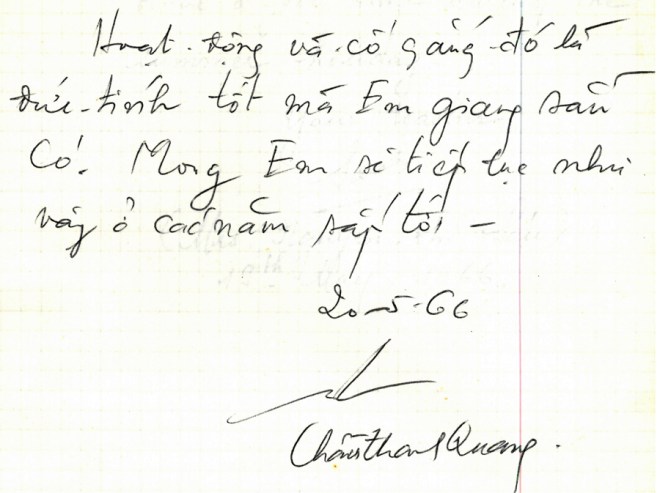 Hoạt động và cố gắng đó là
đức tính tốt mà Em giang sẵn
Có. Mong Em sẽ tiếp tục như
vậy ở các năm sắp tới –
20-5-66
Châu Thanh Quang.